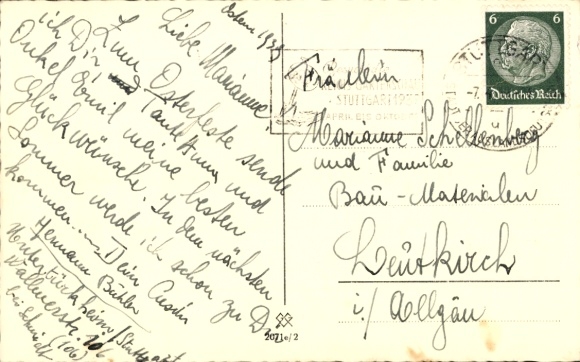 Ostern 1939
Liebe Marianne
Zum Osterfeste sende
ich Dir und Tante Anna und
Onkel Emil meine besten
Glückwünsche. In den nächsten
Sommer werde ich schon zu D.
kommen. Dein Cusin
Hermann Bühler
Untertürkheim/Stuttgart
Wallmerstr. 106
bei
6 6
Deutsches Reich
STUTTGART
STUTTGART 19
Fräulein
Marianne Schellenberg
und Familie
Bau-Materialen
Leutkirch
i./Allgäu
2071e/2